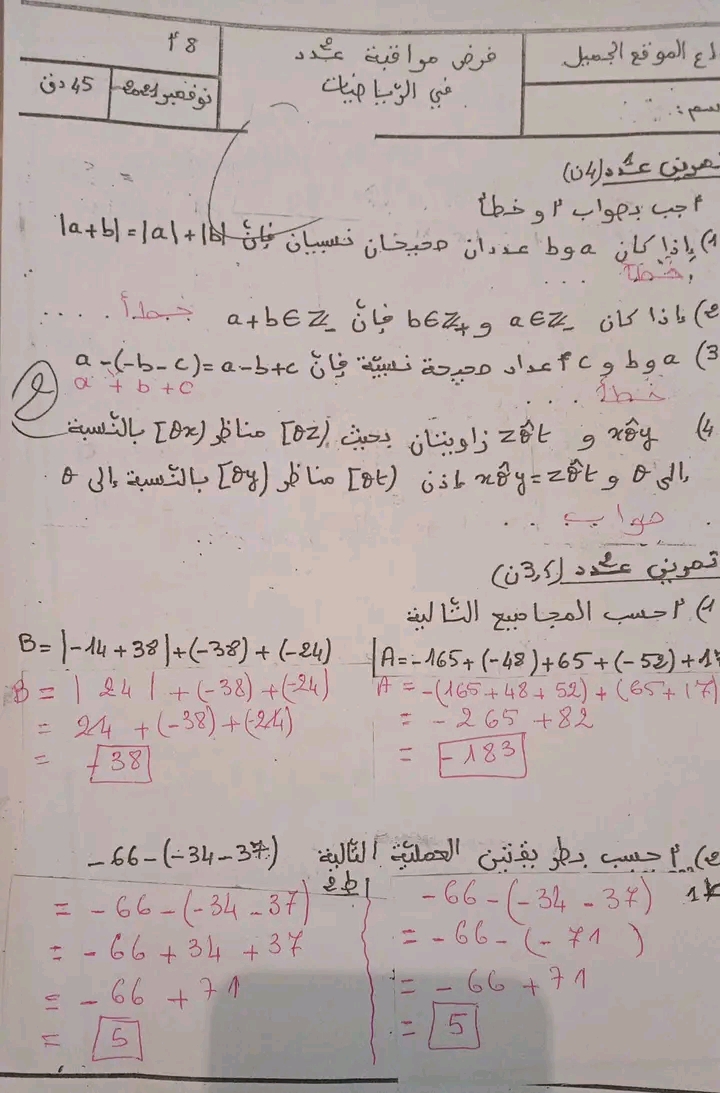 اع الموقع الجميل
فرض مراقبة عدد 2
في الرياضيات
8 أ
نوفمبر 2021
45 دق
سم:
تمرين عدد 1 (4ن)
أجب بصواب أو خطأ
1) إذا كان a و b عددان صحيحان نسبيان فإنّ |a+b| = |a| + |b|
خطأ ...
2) إذا كان a∈ℤ₋ و b∈ℤ₊ فإنّ a+b∈ℤ₋ خطأ .....
3) a و b و c أعداد صحيحة نسبيّة فإنّ a-(-b-c)=a-b+c
a + b + c
خطأ ...
4) xθ̂y و zθ̂t زاويتان بحيث [θz) مناظر [θx) بالنّسبة
إلى θ و [θt) مناظر [θy) بالنّسبة إلى θ إذن xθ̂y=zθ̂t
صواب ..
تمرين عدد 2 (3,5ن)
1) أحسب المجاميع التّالية
A = -165+(-48)+65+(-52)+17
A = -(165+48+52)+(65+17)
= -265+82
= -183
B= |-14+38|+(-38)+(-24)
B = |24|+(-38)+(-24)
= 24+(-38)+(-24)
= -38
2) أحسب بطريقتين العمليّة التّالية -66-(-34-37)
ط1
-66-(-34-37)
= -66-(-71)
= -66+71
= 5
ط2
= -66-(-34-37)
= -66+34+37
= -66+71
= 5